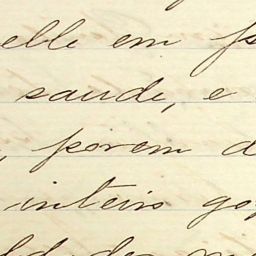 elle em
saude, e
, porem d
inteiro go